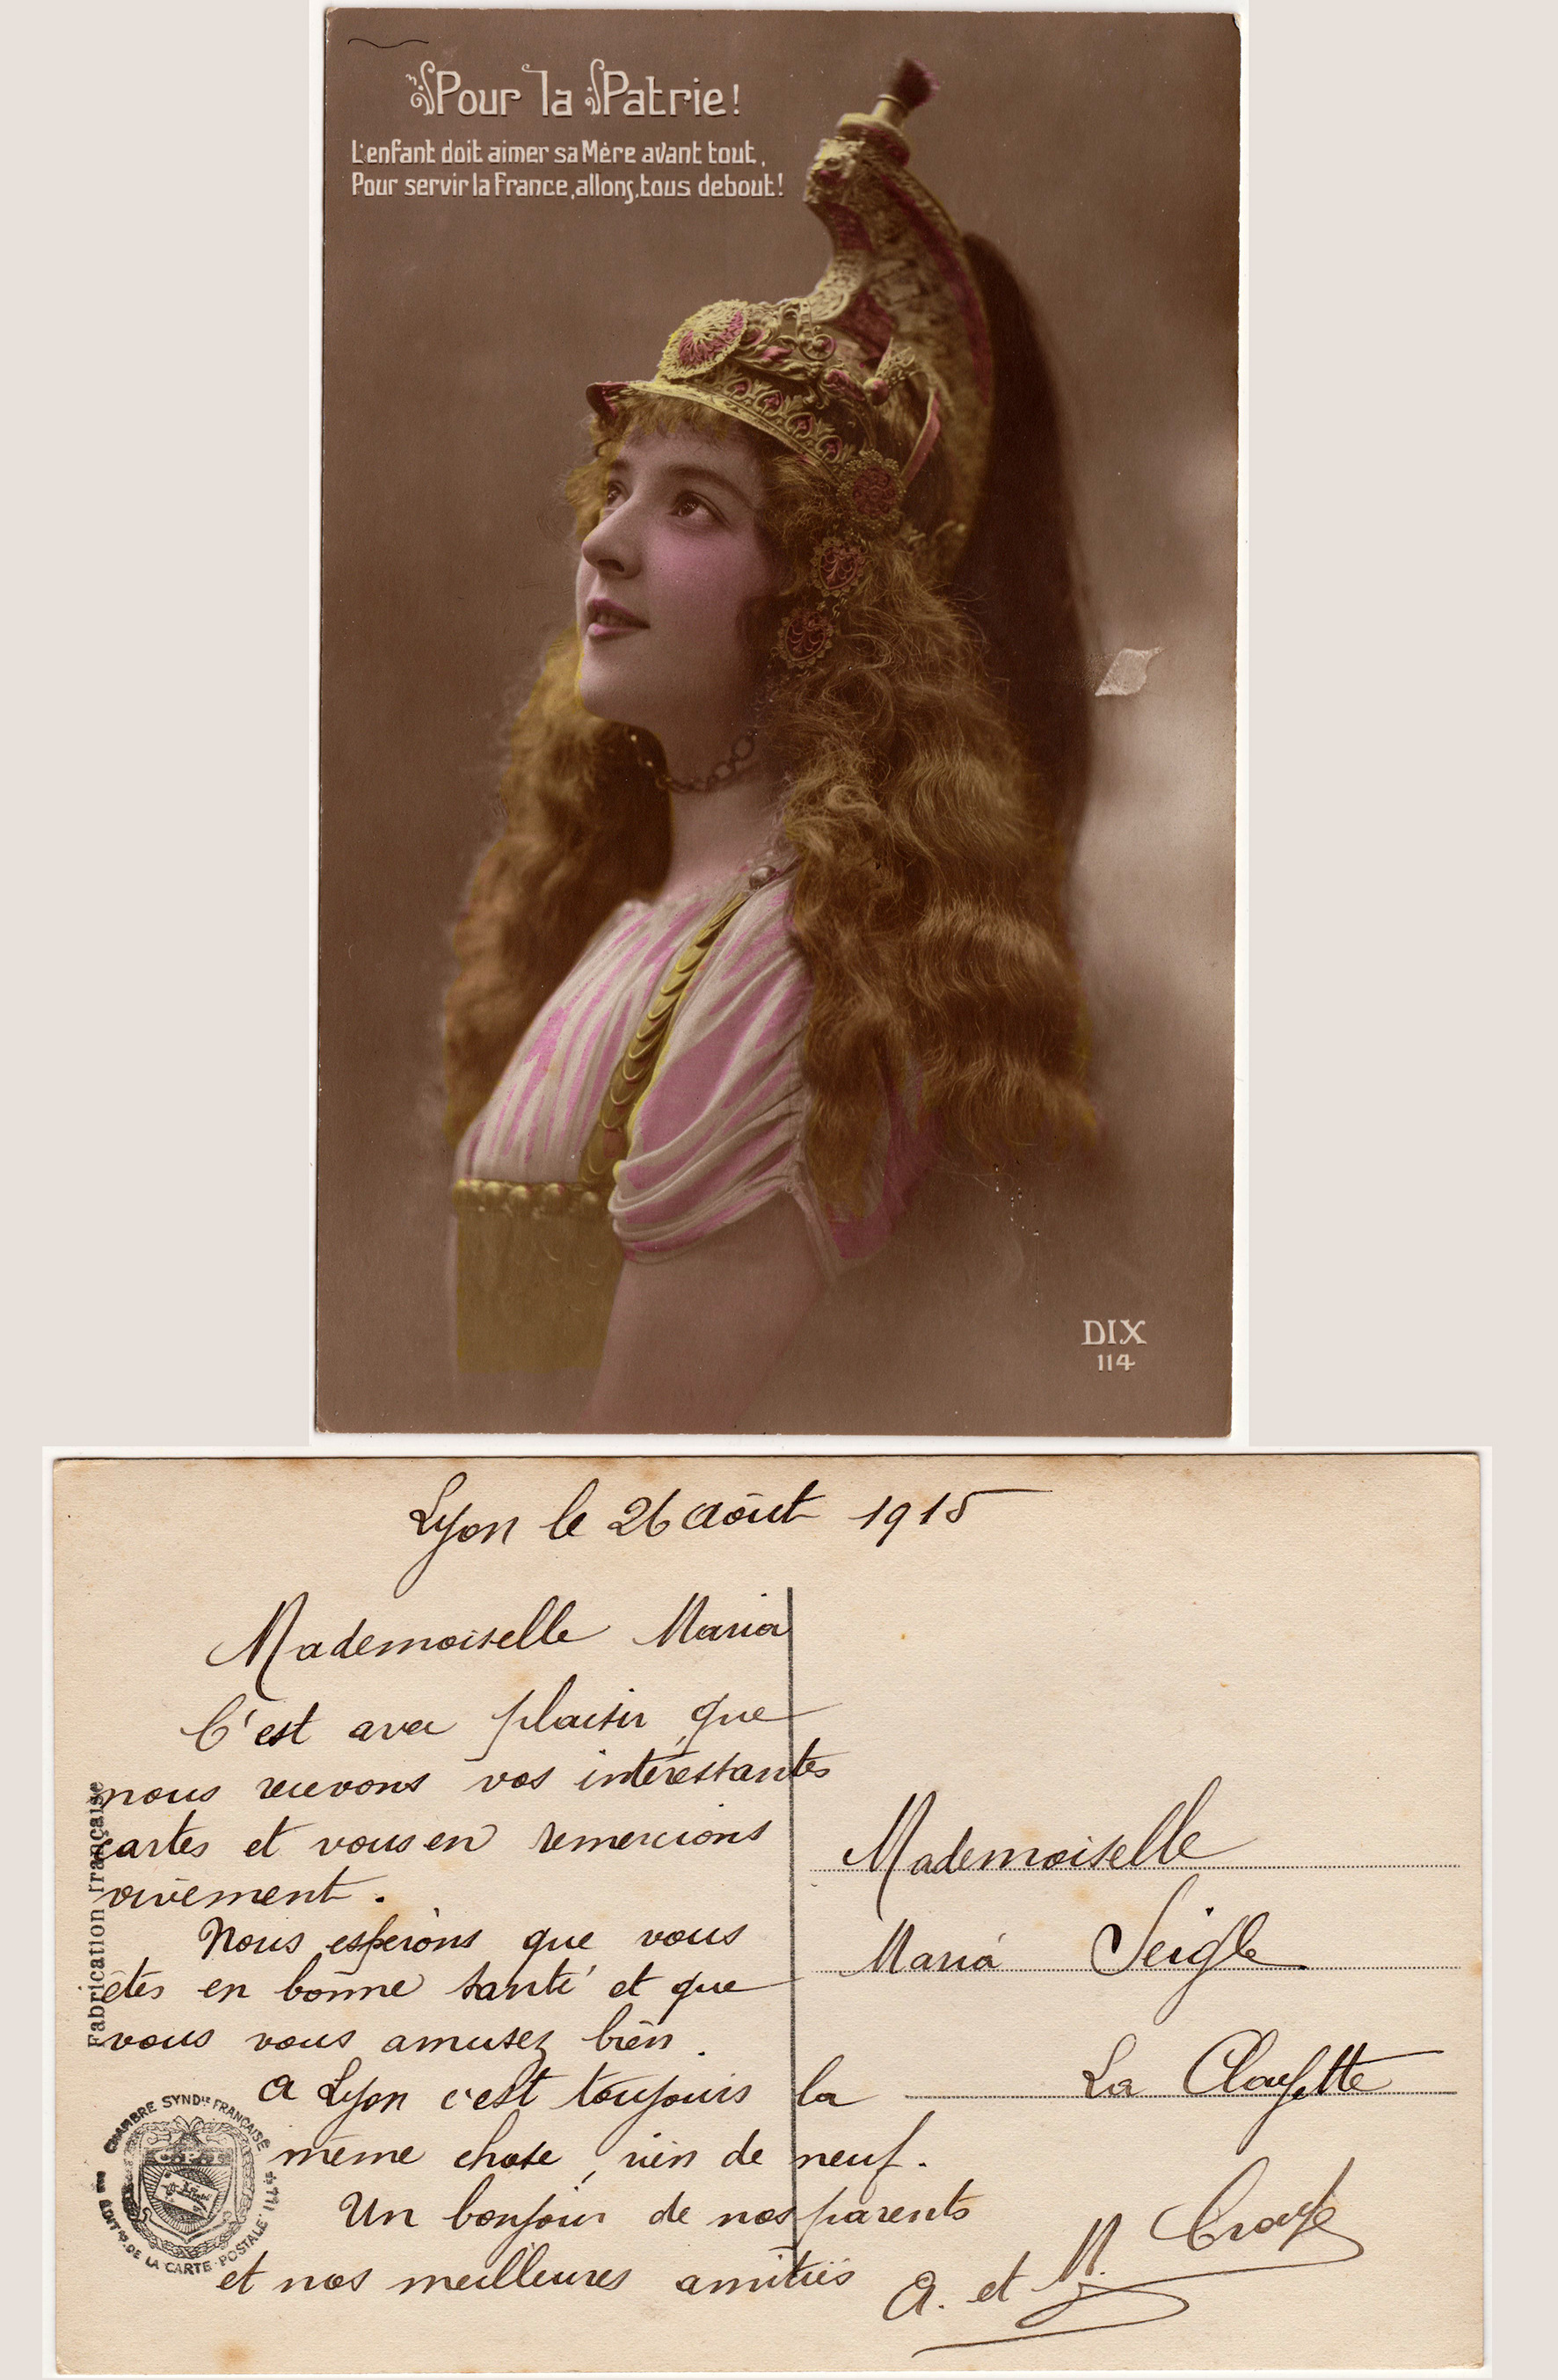 Pour la Patrie!
L'enfant doit aimer sa Mère avant tout,
Pour servir la France, allons, tous debout!
DIX
114
Lyon le 26 Août 1915
Mademoiselle Maria
C'est avec plaisir que
nous recevons vos intéressantes
cartes et vous en remercions
vivement.
Nous espérons que vous
êtes en bonne santé et que
vous vous amusez bien.
A Lyon c'est toujours la
même chose, rien de neuf.
Un bonjour de nos parents
et nos meilleures amitiés
A. et M.
Mademoiselle
Maria Seigle
La Clayette
Fabrication française
CHAMBRE SYND^LE FRANÇAISE
DE LA CARTE POSTALE ILL^ÉE